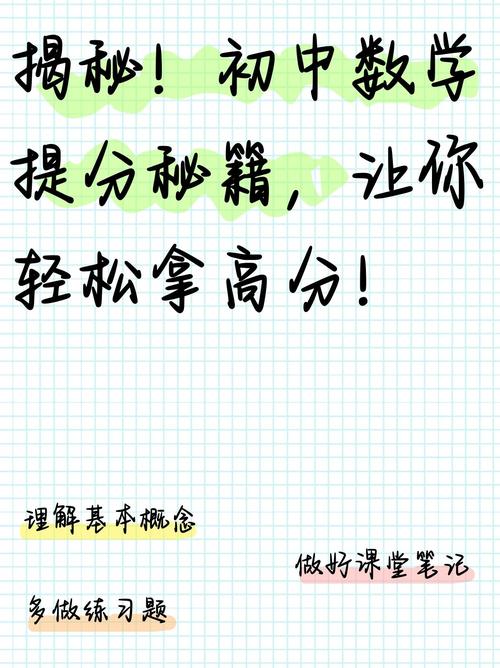 揭秘！初中数学
提分秘籍，让你
轻松拿高分！
理解基本概念
做好课堂笔记
多做练习题